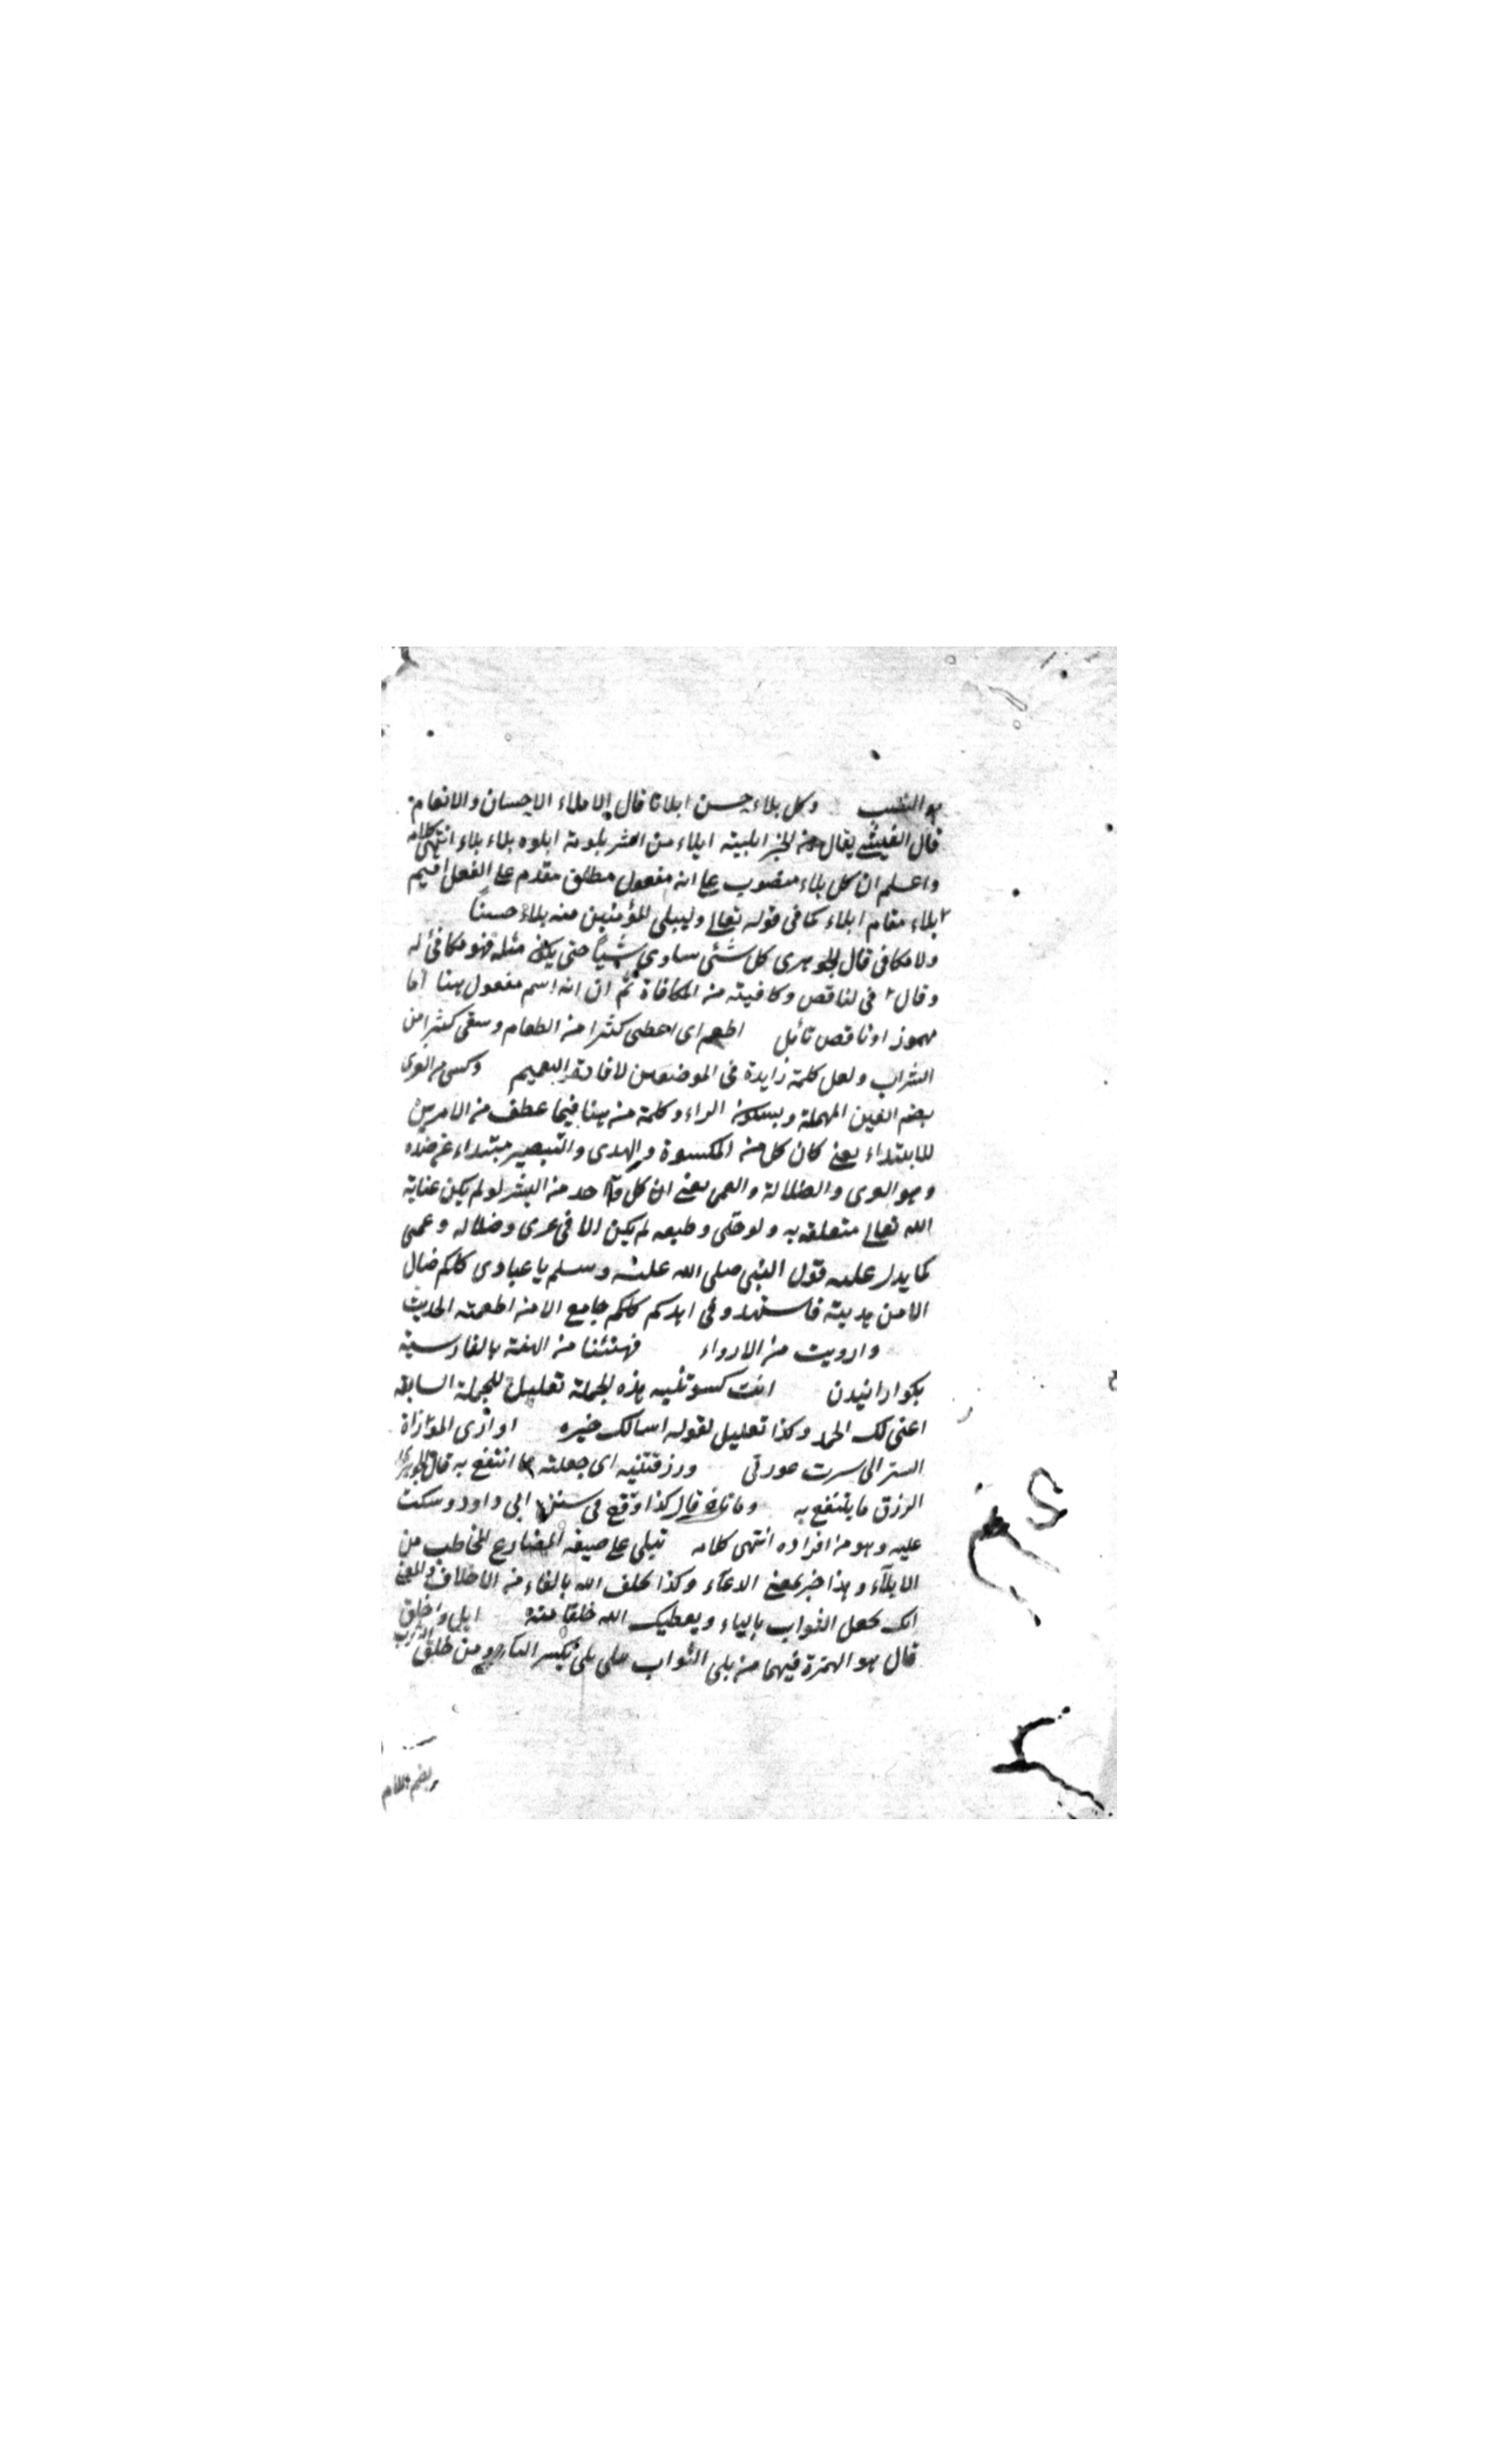 هو النصب وكل بلاء حسن ابلانا قال الابلاء الاحسان والانعام
قال القتيبي يقال من الخير ابليته ابلاء من الشر بلوته ابلوه بلاء بلاء انتهى كلامه
واعلم ان كل بلاء منصوب على انه مفعول مطلق مقدم على الفعل اقيم
بلاء مقام ابلاء كما في قوله تعالى وليبلي المؤمنين منه بلاء حسنا
ولا مكافى قال الجوهرى كل شئ ساوى شيئا حتى يكون مثله فهو مكافئ له
وقال في الناقص وكافيته من المكافاة ثم ان انه اسم مفعول هنا اما
مهموز او ناقص تأمل اطعم اى اعطى كثيرا من الطعام وسقى كثيرا من
الشراب ولعل كلمة زايدة في الموضعين لافادة التعميم وكسى من العرى
بضم العين المهملة وبسكون الراء وكلمة من هنا فيما عطف من الامرين
للابتداء يعنى كان كل من المكسوة والهدى والتبصير مبتداء من ضده
وهو العرى والضلالة والعمى يعنى ان كل واحد من البشر لو لم يكن عناية
الله تعالى متعلقه به ولو خلى وطبعه لم يكن الا في عرى وضلاله وعمى
كما يدل عليه قول النبى صلى الله عليه وسلم يا عبادى كلكم ضال
الا من هديته فاستهدونى اهدكم كلكم جايع الا من اطعمته الحديث
وارويت من الارواء فهنئنا من الهنة بالفارسية
بكوارانيدن انت كسوتنيه هذه الجملة تعليل للجملة السابقه
اعنى لك الحمد وكذا تعليل لقوله اسالك خيره اوارى الموازاة
الستر الى سرت عورتى ورزقتنيه اى جعلته ما انتفع به قال الجوهرى
الرزق ما ينتفع به وما تأخر قال كذا وقع في سنن ابى داود وسكت
عليه وهو من افراده انتهى كلامه تبلى على صيغه المضارع المخاطب من
الابلاء وهذا خبر بمعنى الدعاء وكذا يخلف الله بالفاء من الاخلاف والمعنى
انك تجعل الثواب باليا ويعطيك الله خلفا منه ابلى واخلق
قال هو الهمزة فيهما من بلى الثواب يبلى بلى بكسر الباء ومن خلق الثوب
بضم اللام